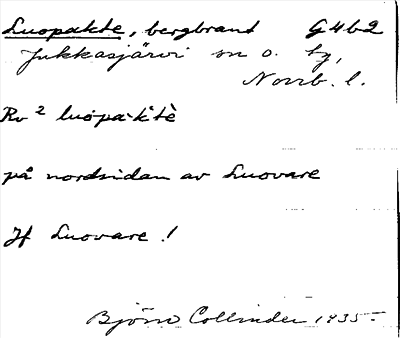 Luopakte, bergbrant G4b2
Jukkasjärvi sn o. tg,
Norrb. l.
Rv 2 luo̯pa·ktè
på nordsidan av Luovare
Jf Luovare!
Björn Collinder 1935-